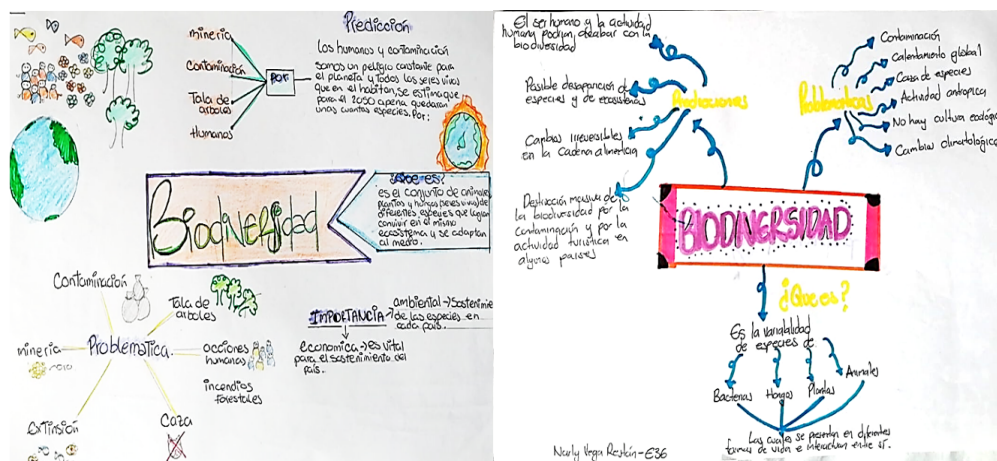 Predicción
Los humanos y contaminación
somos un peligro constante para
el planeta y todos los seres vivos
que en el habitan, se estima que
para el 2050 apena quedaran
unas cuantas especies. Por:
minería
Contaminación
Tala de
arboles
Humanos
POR
Biodiversidad
¿Que es?
es el conjunto de animales
plantas y hongos (seres vivos) de
diferentes especies que logran
convivir en el mismo
ecosistema y se adaptan
al medio.
Contaminación
Tala de
arboles
minería
Problemática.
occiones
humanas
incendios
forestales
Extinsión
Caza
IMPORTANCIA
ambiental → Sostenimie
de las especies en
cada país.
economica → es vital
para el sostenimiento del
país.
El ser humano y la actividad
humana podrian acabar con la
biodiversidad
Posible desaparición de
especies y de ecosistemas
Cambios irreversibles
en la cadena alimenticia
Destrucción masiva de
la biodiversidad por la
contaminación y por la
actividad turística en
algunos países
Predicciones
Problematicas
Contaminación
Calentamiento global
Caza de especies
Actividad antropica
No hay cultura ecológic
Cambios climatológic
BIODIVERSIDAD
¿Que es?
Es la variabilidad
de especies de
Bacterias
Hongos
Plantas
Animales
Las cuales se presentan en diferentes
formas de vida e interactuan entre sí.
Narly Vega Restán - E36